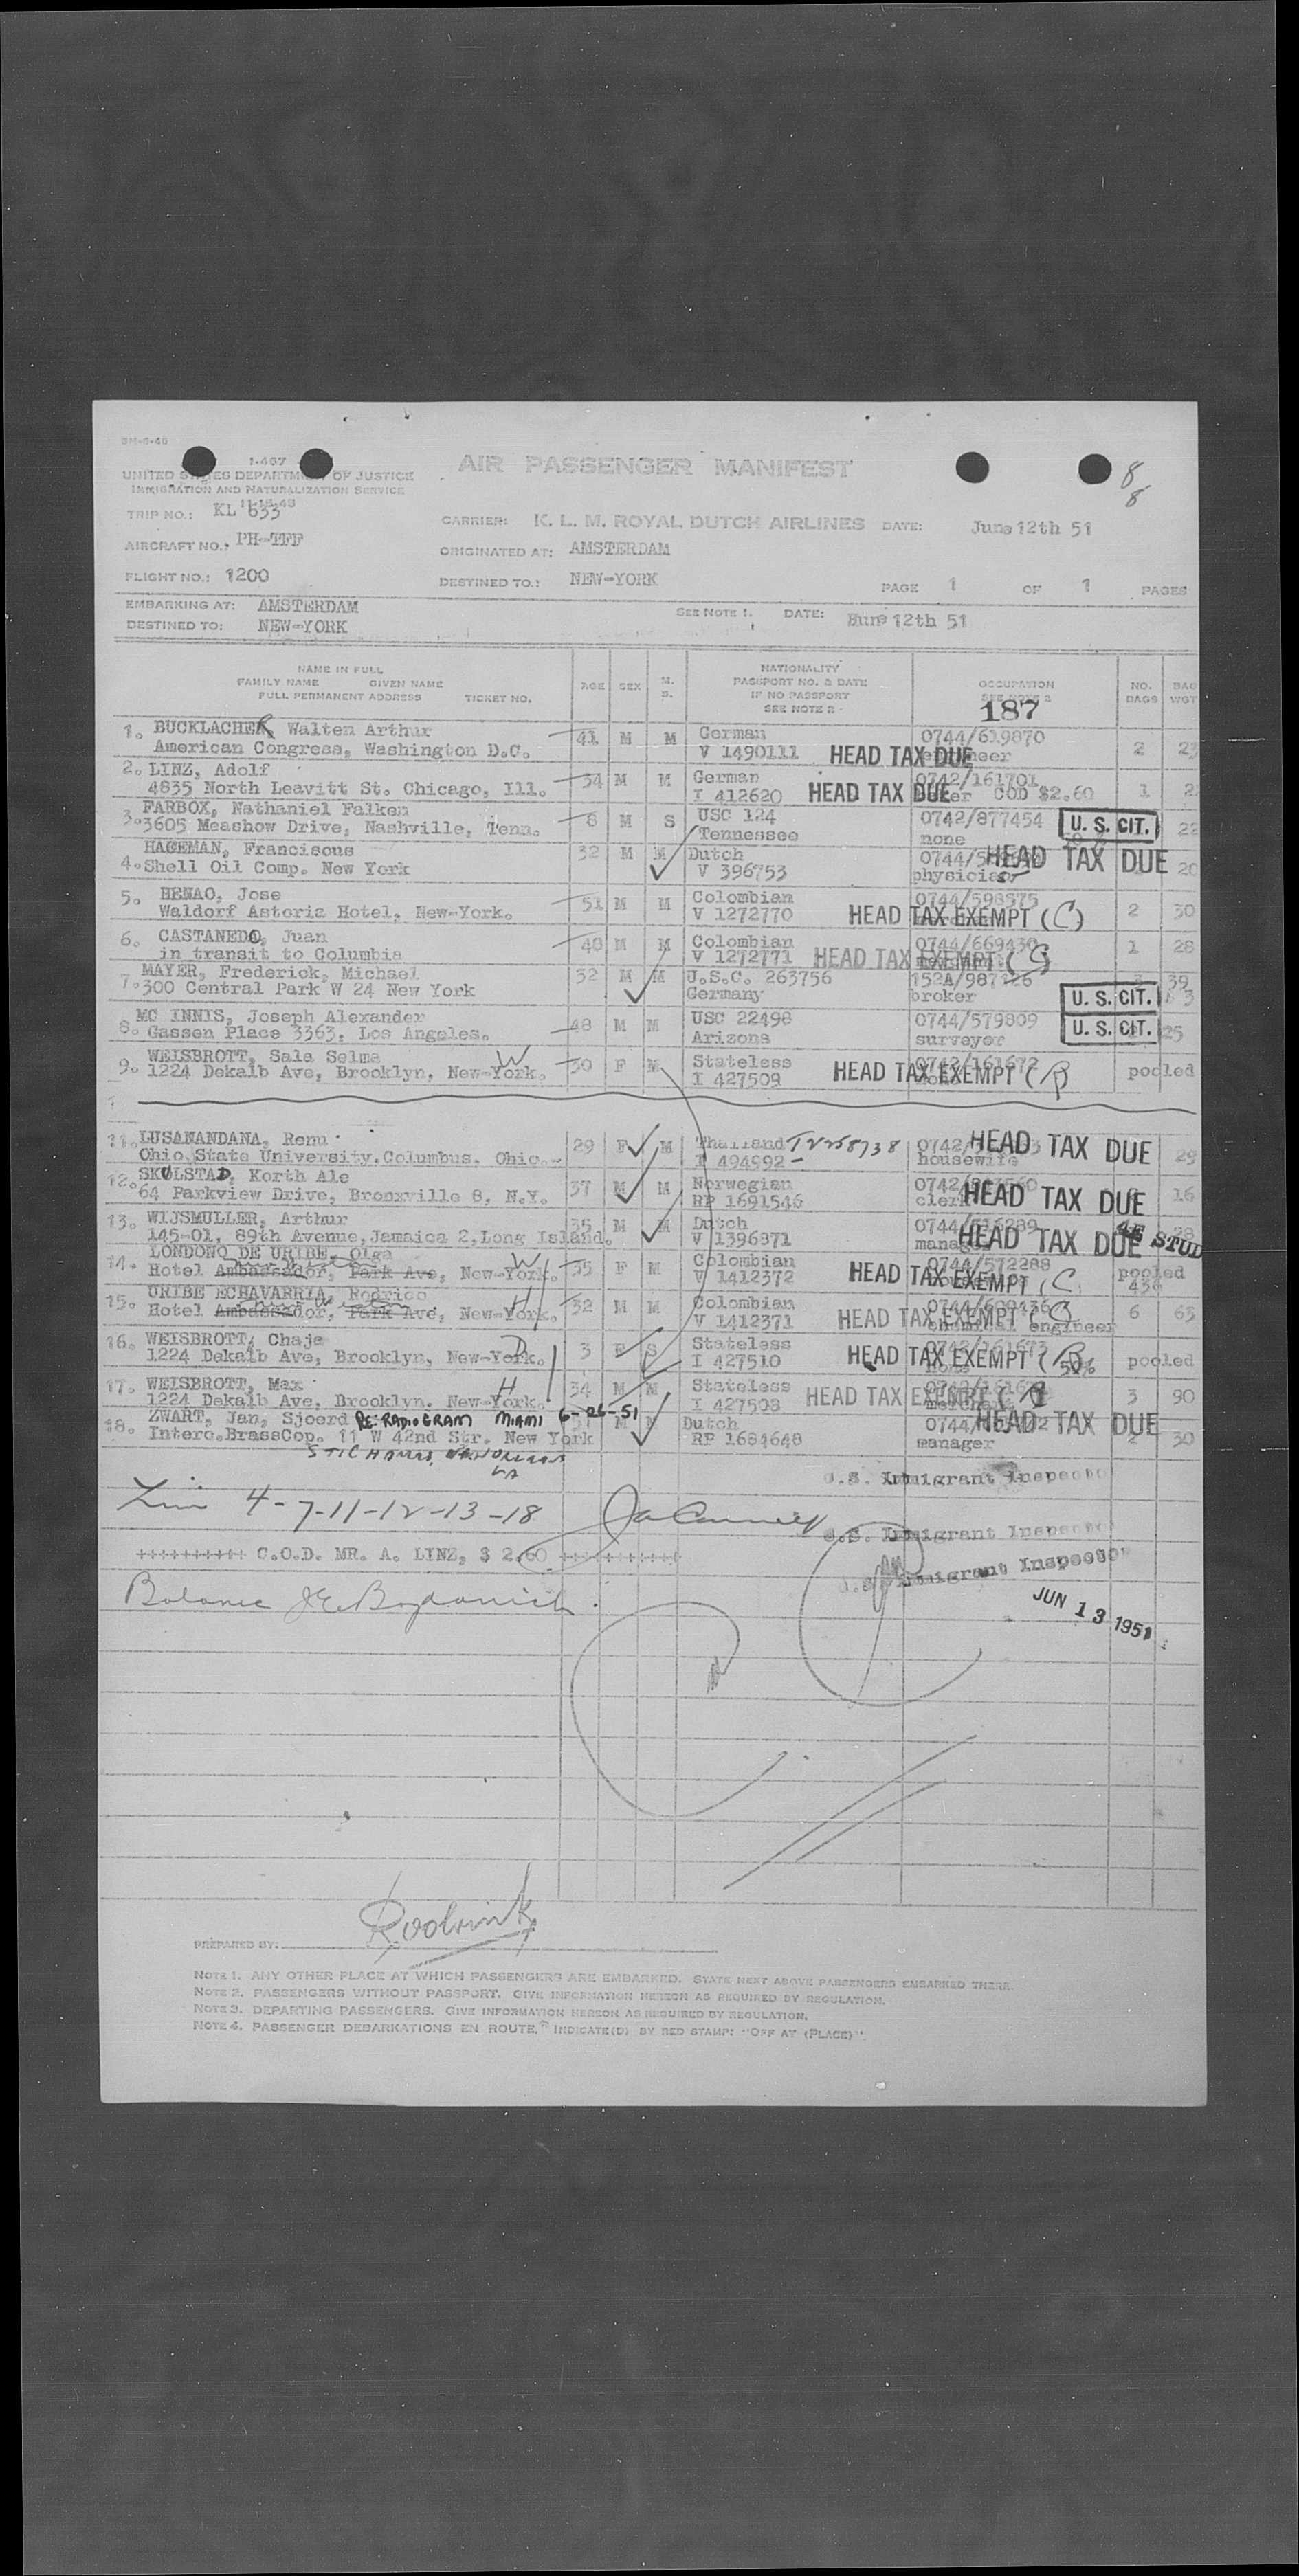 I-467
UNITED STATES DEPARTMENT OF JUSTICE
IMMIGRATION AND NATURALIZATION SERVICE
AIR PASSENGER MANIFEST
8/8
TRIP NO.: KL 633
CARRIER: K. L. M. ROYAL DUTCH AIRLINES DATE: June 12th 51
AIRCRAFT NO.: PH-TFF
ORIGINATED AT: AMSTERDAM
FLIGHT NO.: 1200
DESTINED TO.: NEW-YORK
PAGE 1 OF 1 PAGES
EMBARKING AT: AMSTERDAM
SEE NOTE 1. DATE: 12th 51
DESTINED TO: NEW-YORK
NAME IN FULL
FAMILY NAME GIVEN NAME
FULL PERMANENT ADDRESS TICKET NO.
AGE SEX M. S.
NATIONALITY
PASSPORT NO. & DATE
IF NO PASSPORT
SEE NOTE 2
OCCUPATION
SEE NOTE 2
187
NO. BAGS
BAG WGT
1. BUCKLACHER, Walten Arthur 41 M M German 0744/619870
American Congress, Washington D.C. V 1490111 HEAD TAX DUE 2
2. LINZ, Adolf 34 M M German 0742/161701
4835 North Leavitt St. Chicago, Ill. I 412620 HEAD TAX DUE COD $2.60 1
3. FARBOX, Nathaniel Falken 8 M S USC 124 0742/877454 U. S. CIT. 22
3605 Meashow Drive, Nashville, Tenn. Tennessee none
4. HAGEMAN, Franciscus 32 M M Dutch HEAD TAX DUE
Shell Oil Comp. New York V 396753 physician 20
5. HENAO, Jose 51 M M Colombian 0744/598575
Waldorf Astoria Hotel, New-York. V 1272770 HEAD TAX EXEMPT (C) 2 30
6. CASTANEDO, Juan 40 M M Colombian 0744/669430 1 28
in transit to Columbia V 1272771 HEAD TAX EXEMPT (C)
7. MAYER, Frederick, Michael 32 M M U.S.C. 263756 152A/987126 39
300 Central Park W 24 New York Germany broker U. S. CIT.
8. MC INNIS, Joseph Alexander 48 M M USC 22498 0744/579809
Gassen Place 3363, Los Angeles. Arizona surveyor U. S. CIT. 25
9. WEISBROTT, Sale Selma W 30 F M Stateless 0742/161672
1224 Dekalb Ave, Brooklyn, New-York. I 427509 HEAD TAX EXEMPT (R) pooled
11. LUSANANDANA, Renu 29 F M Thailand HEAD TAX DUE
Ohio State University. Columbus. Ohio. I 494992 housewife 29
12. SKULSTAD, Korth Ale 37 M M Norwegian
64 Parkview Drive, Bronxville 8, N.Y. RP 1691546 HEAD TAX DUE 16
13. WIJSMULLER, Arthur 35 M M Dutch
145-01, 89th Avenue, Jamaica 2, Long Island. V 1396871 HEAD TAX DUE 4E STUD
14. LONDONO DE URIBE, Olga W 35 F M Colombian 0744/572288 pooled
Hotel Ambassador, Park Ave, New-York. V 1412372 HEAD TAX EXEMPT (C)
15. URIBE ECHAVARRIA, Rodrigo H 32 M M Colombian 6 63
Hotel Ambassador, Park Ave, New-York. V 1412371 HEAD TAX EXEMPT (C) chemical engineer
16. WEISBROTT, Chaje D 3 F S Stateless 0742/161673
1224 Dekalb Ave, Brooklyn, New-York. I 427510 HEAD TAX EXEMPT (R) 50% pooled
17. WEISBROTT, Max H 34 M M Stateless 3 90
1224 Dekalb Ave, Brooklyn. New-York. I 427508 HEAD TAX EXEMPT (R)
18. ZWART, Jan, Sjoerd RE: RADIOGRAM MIAMI 6-26-51 M M Dutch HEAD TAX DUE
Interc.BrassCop. 11 W 42nd Str. New York RP 1684648 manager 30
U.S. Immigrant Inspector
4-7-11-12-13-18
U.S. Immigrant Inspector
++++++++++ C.O.D. MR. A. LINZ, $ 2.60 +++++++++++
U.S. Immigrant Inspector
Balance
JUN 13 1951
PREPARED BY: Roobrink
NOTE 1. ANY OTHER PLACE AT WHICH PASSENGERS ARE EMBARKED. STATE NEXT ABOVE PASSENGERS EMBARKED THERE.
NOTE 2. PASSENGERS WITHOUT PASSPORT. GIVE INFORMATION HEREON AS REQUIRED BY REGULATION.
NOTE 3. DEPARTING PASSENGERS. GIVE INFORMATION HEREON AS REQUIRED BY REGULATION.
NOTE 4. PASSENGER DEBARKATIONS EN ROUTE. INDICATE(D) BY RED STAMP: "OFF AT (PLACE)".